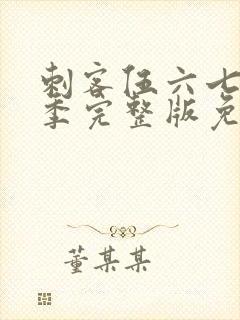 刺客伍六七
季完整版免
董某某